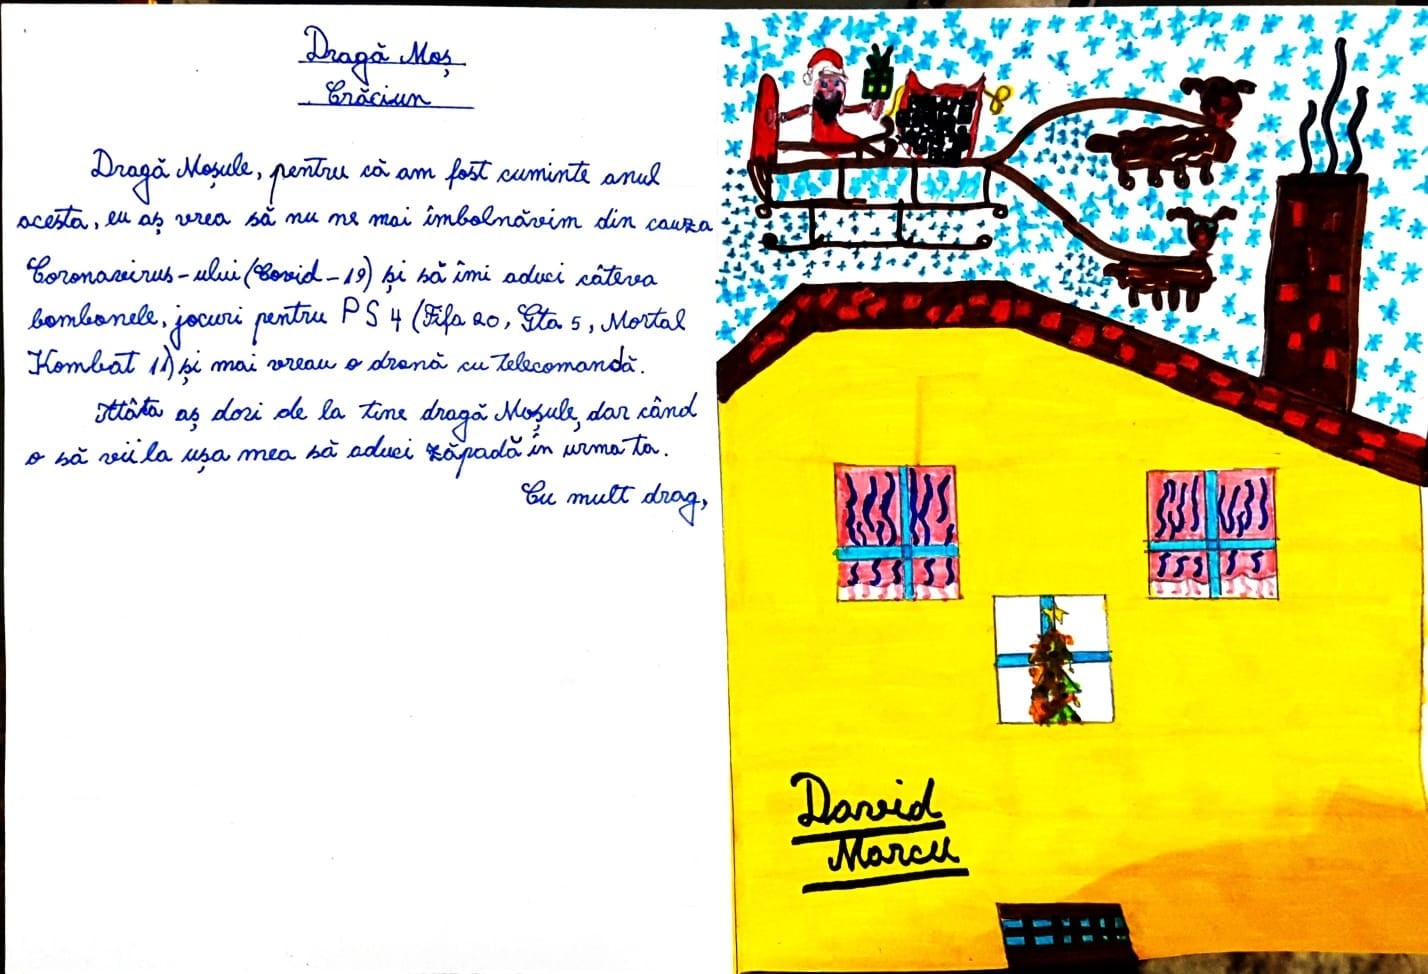 Dragă Moș
Crăciun
Dragă Moșule, pentru că am fost cuminte anul
acesta, eu aș vrea să nu ne mai îmbolnăvim din cauza
Coronavirus-ului (Covid-19) și să îmi aduci câteva
bomboane, jocuri pentru PS4 (Fifa 20, Gta 5, Mortal
Kombat 11) și mai vreau o dronă cu telecomandă.
Atâta aș dori de la tine dragă Moșule, dar când
o să vii la ușa mea să aduci zăpadă în urma ta.
Cu mult drag,
David
Marcu